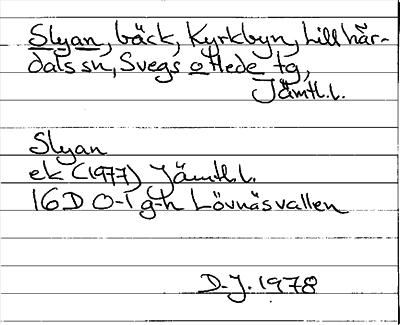 Slyan, bäck, Kyrkbyn, Lillhär-
dals sn, Svegs o Hede tg,
Jämtl.l.
Slyan
ek (1977) Jämtl.l.
16D 0-1 g-h Lövnäsvallen
D.J. 1978